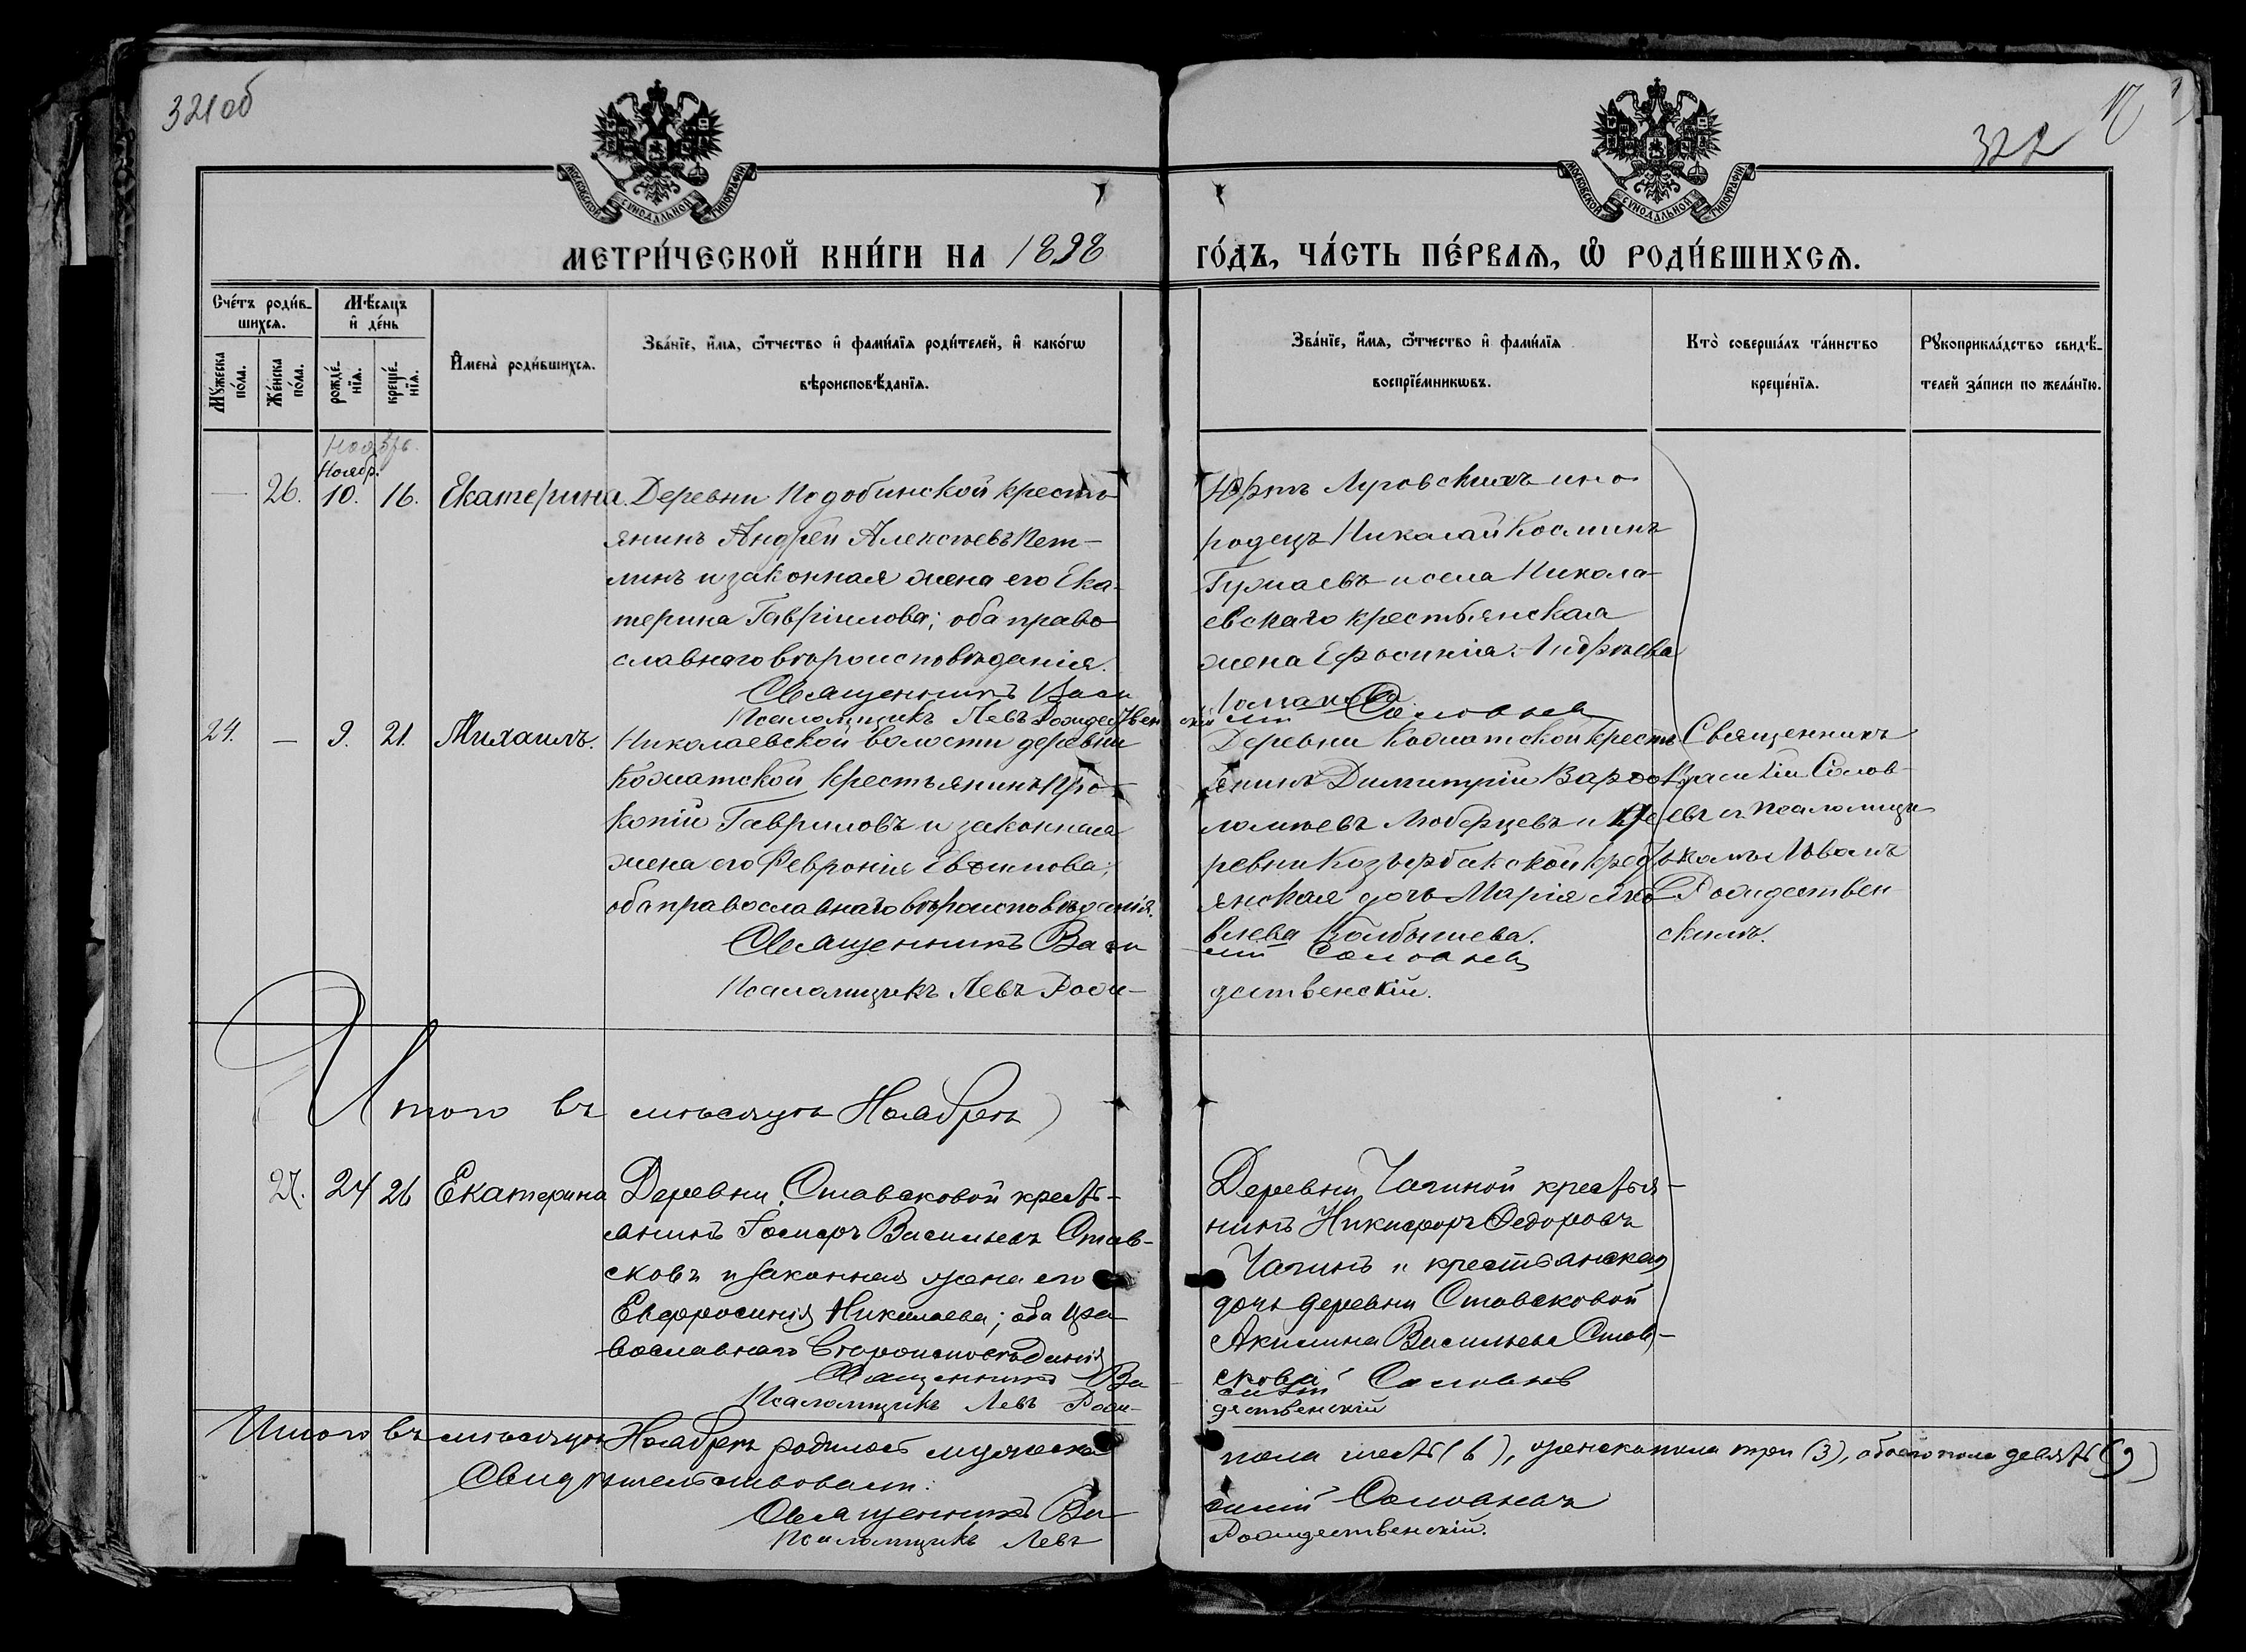 321 об
322
МОСКОВСКОЙ СѴНОДАЛЬНОЙ ТИПОГРАФІИ
МОСКОВСКОЙ СѴНОДАЛЬНОЙ ТИПОГРАФІИ
МЕТРИ́ЧЕСКОЙ КНИ́ГИ НА 1898
ГО́ДЪ, ЧА́СТЬ ПЕ́РВАѦ, Ѡ РОДИ́ВШИХСѦ.
Сче́тъ роди́в-
шихсѧ.
Му́жеска
по́ла.
Же́нска
по́ла.
Мѣ́сѧцъ
и҆ де́нь
рожде́-
нїѧ.
креще́-
нїѧ.
И҆мена̀ роди́вшихсѧ.
Зва́нїе, и҆́мѧ, ѻ҆́тчество и҆ фами́лїѧ роди́телей, и҆ како́гѡ
вѣроисповѣ́данїѧ.
Зва́нїе, и҆́мѧ, ѻ҆́тчество и҆ фами́лїѧ
воспрїе́мникѡвъ.
Кто̀ соверша́лъ та́инство
креще́нїѧ.
Рꙋкоприкла́дство свидѣ́-
телей за́писи по жела́нїю.
Ноябрь.
Ноябр.
— 26. 10. 16. Екатерина. Деревни Подобинской кресть
янинъ Андрей Алексѣевъ Пет-
линъ и законная жена его Ека-
терина Гавріилова; оба право
славнаго вѣроисповѣданія.
Священникъ Васи
Псаломщикъ Левъ Рождествен
Юртъ Луговскихъ ино
родецъ Николай Косминъ
и села Никола-
евскаго крестьянская
жена Ефросинія Андреева
лій Соловьев
скій
24. — 9. 21. Михаилъ. Николаевской волости деревни
Кожматской крестьянинъ Про-
копій Гавриловъ и законная
жена его Февронія Евѳимова;
оба православнаго вѣроисповѣданія.
Священникъ Васи
Псаломщикъ Левъ Рож-
Деревни Кожматской кресть
янинъ Димитрій Варѳо
ломѣевъ Люберцевъ и де
ревни крестъ
янская дочь Марія Яко
влева Колбышева.
лій Соловьев
дественскій.
Священникъ
Василій Солов-
евъ и псаломщи
комъ Львомъ
Рождествен
скимъ.
Итого въ мѣсяцѣ Ноябрѣ
27. 24 26 Екатерина Деревни Ставсковой кресть-
янинъ Васильевъ Став-
сковъ и законная жена его
Евфросинія Николаева; оба пра-
вославнаго вѣроисповѣданія
Священникъ Ва
Псаломщикъ Левъ Рож-
Деревни Чагиной крестья-
нинъ Никифоръ Ѳедоровъ
Чагинъ и крестьянская
дочь деревни Ставсковой
Акилина Васильева Став-
скова
силій Соловьев
дественскій
Итого въ мѣсяцѣ Ноябрѣ родилось мужеска
пола шесть (6), женска пола три (3), обоего пола девять (9)
Свидѣтельствовали:
Священникъ Ва
силій Соловьевъ
Псаломщикъ Левъ
Рождественскій.